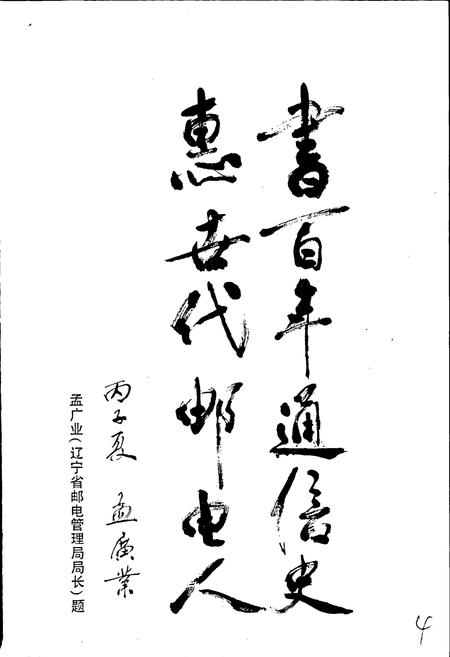 書百年通信史
惠世代邮电人
丙子夏 孟廣業
孟广业(辽宁省邮电管理局局长)题
4